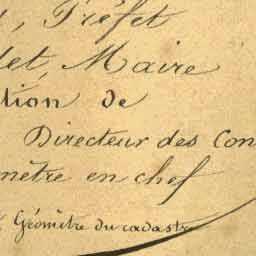 Préfet
et, Maire
tion de
Directeur des Con
mètre en chef
Géomètre du cadastre